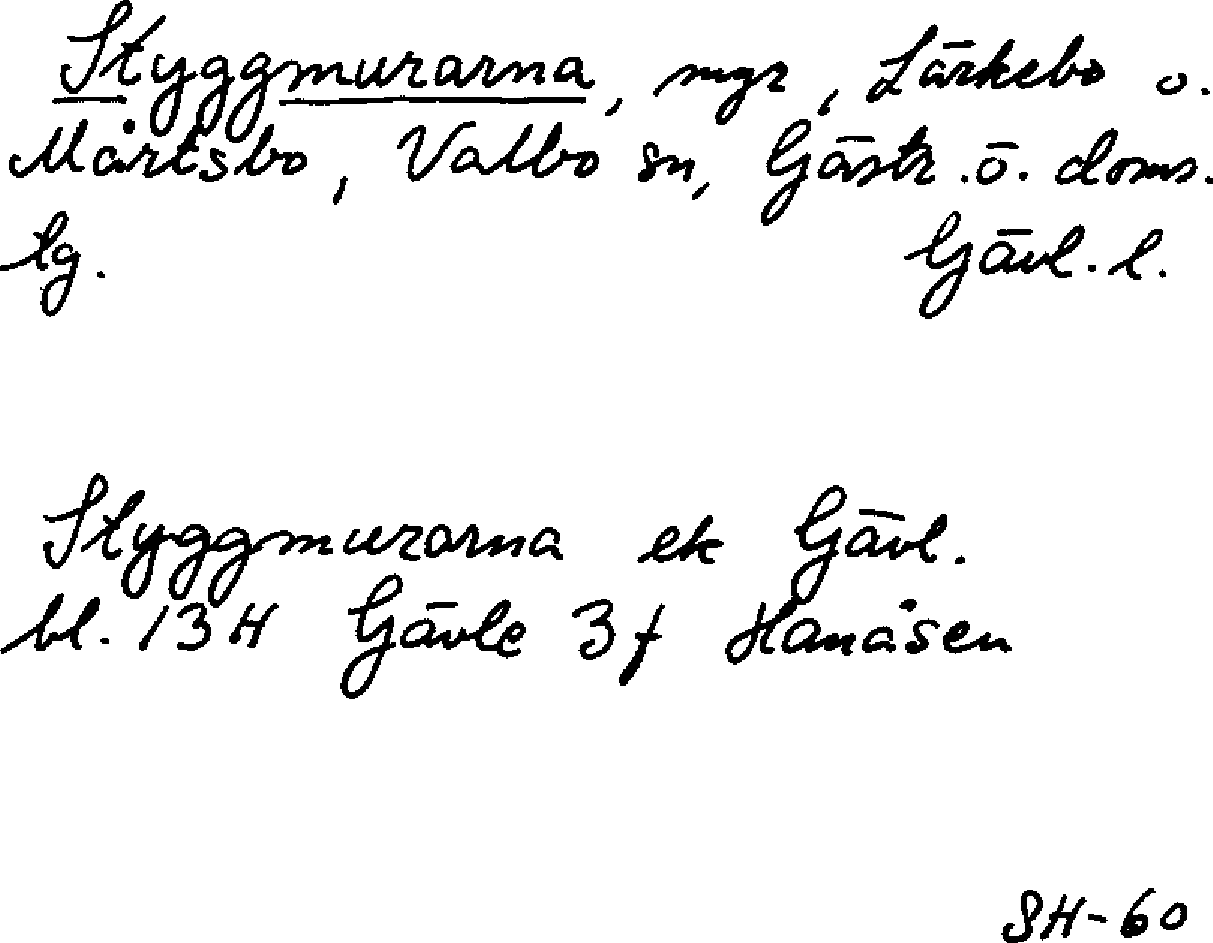 Styggmurarna, mgr, Lärkebo o.
Mårtsbo, Valbo sn, Gästr. ö. doms.
tg. Gävl. l.
Styggmurarna ek Gävl.
bl. 13H Gävle 3f Hanåsen
SH-60